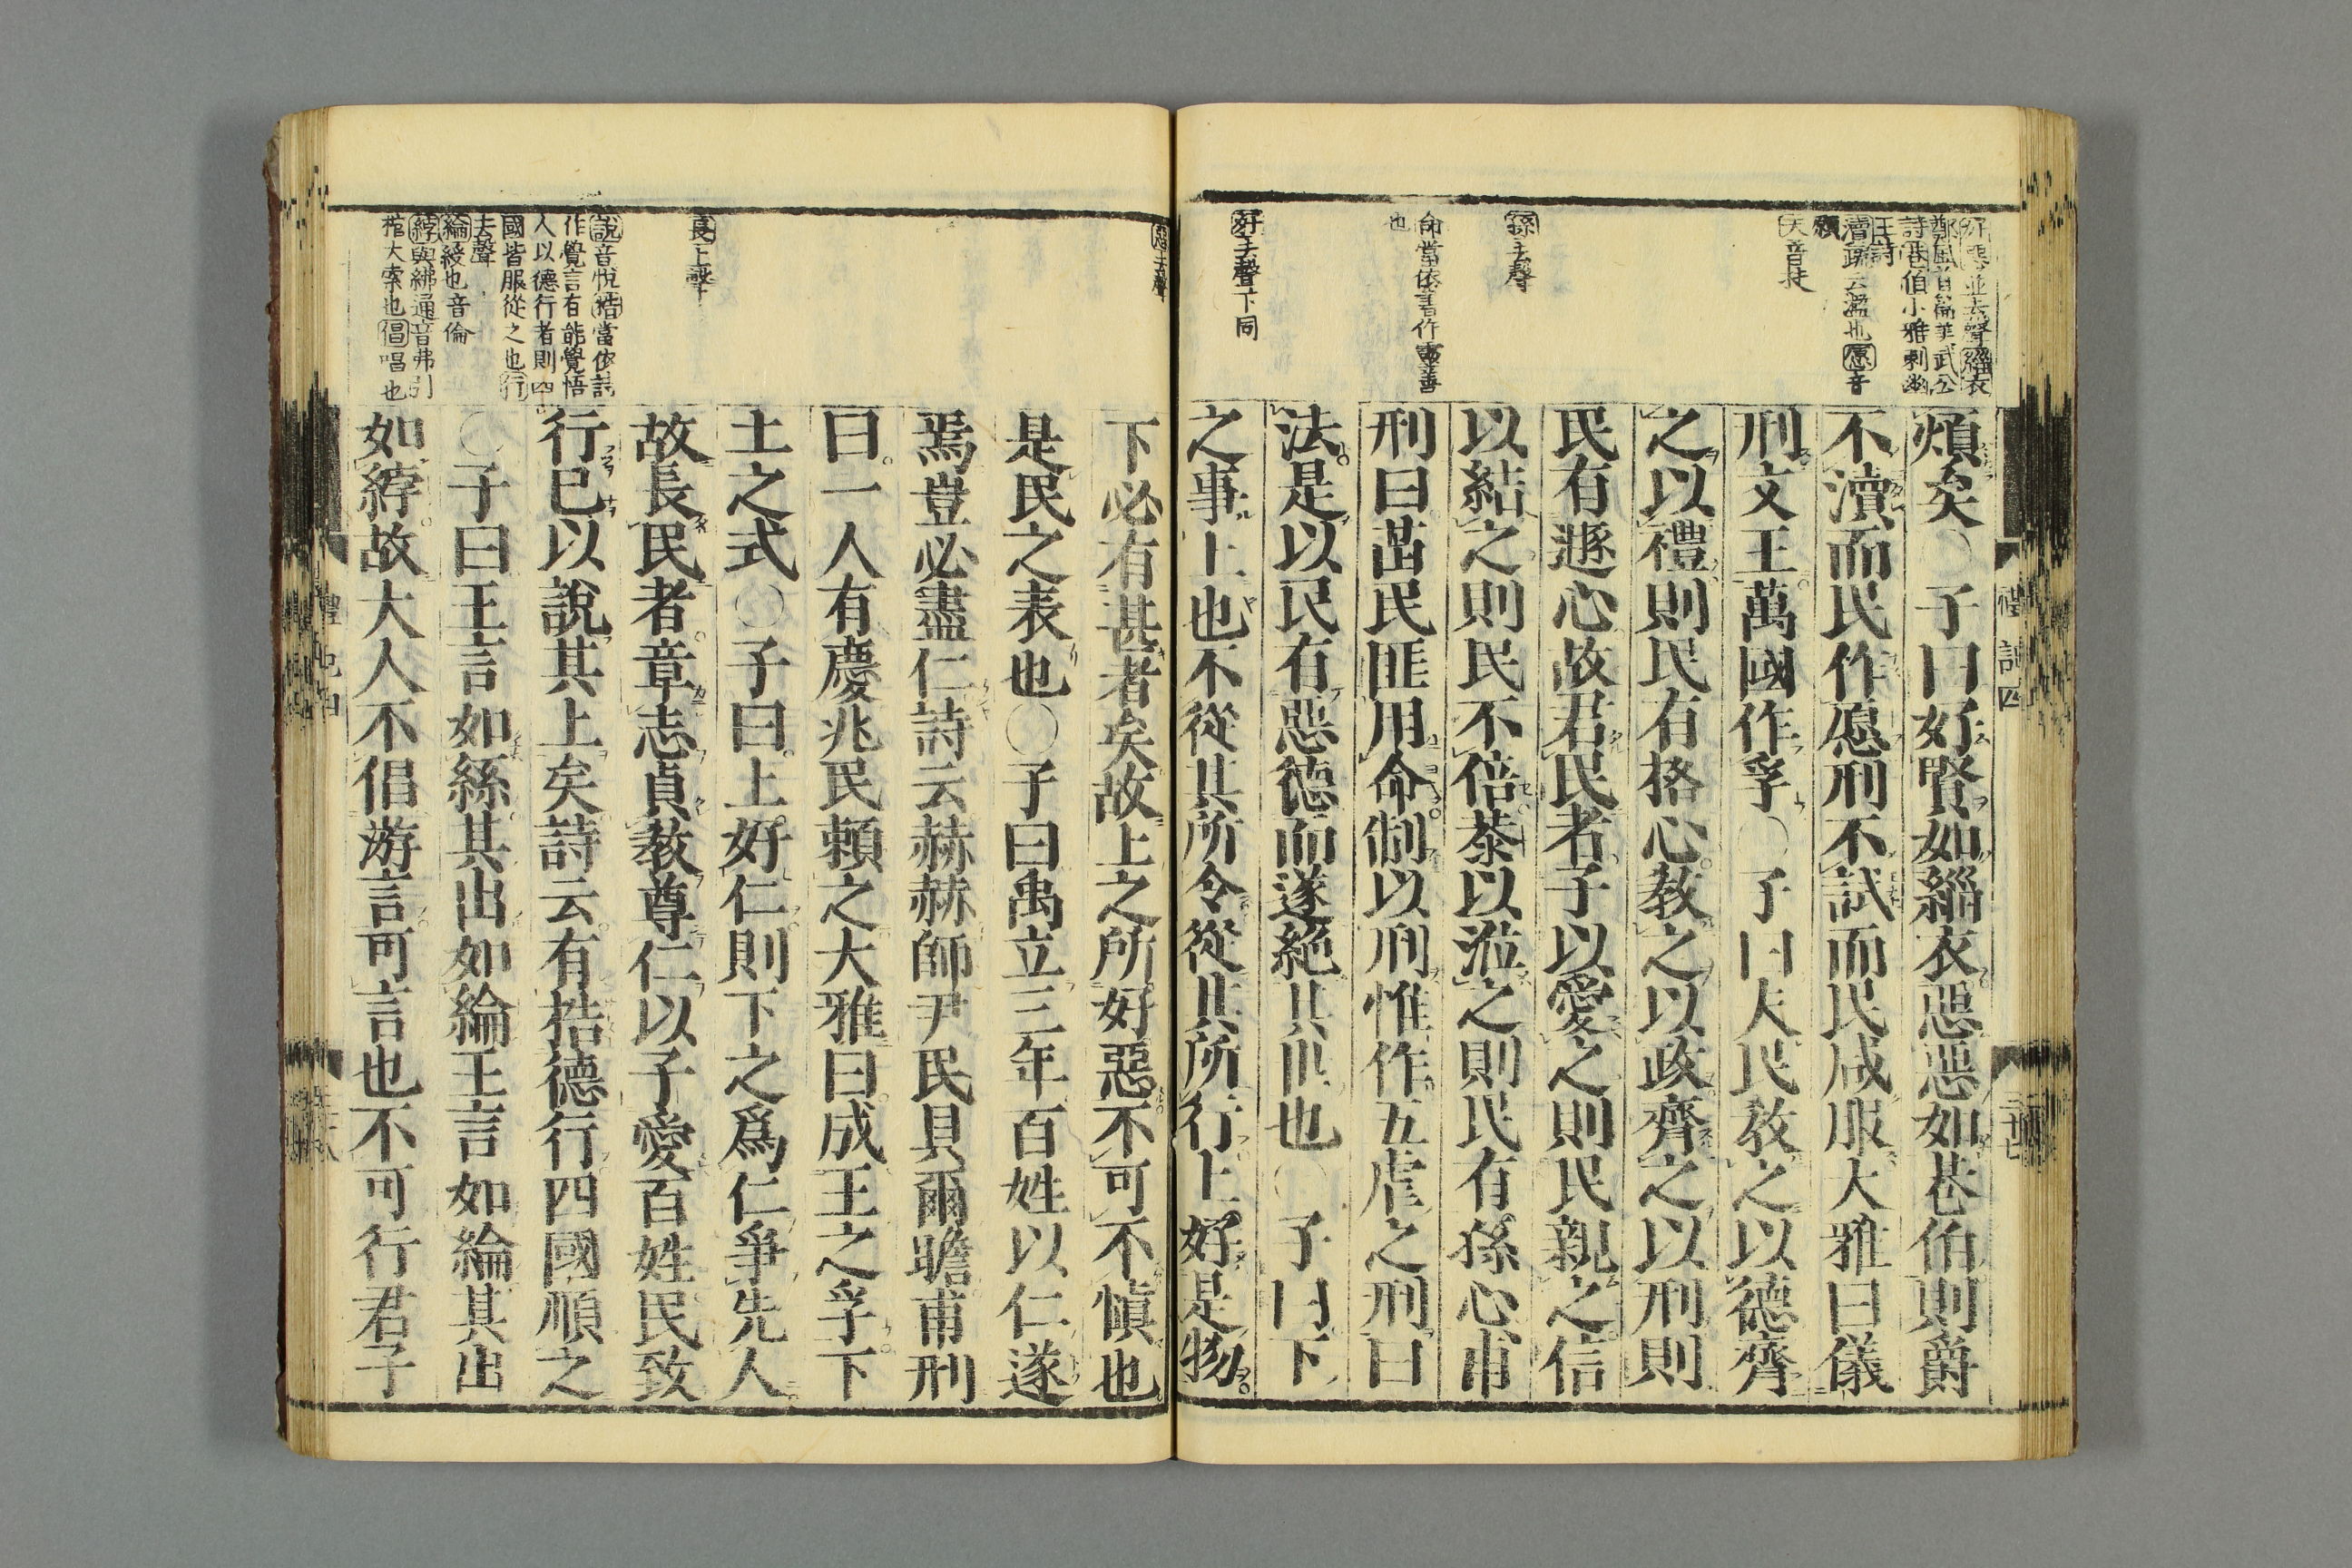 好惡並去聲緇衣
鄭風首篇美武公
詩巷伯小雅刺幽
王詩
瀆疏云濫也愿音
願
夫音扶
孫去聲
命當依書作靈善
也
好去聲下同
煩矣○子曰好賢如緇衣惡惡如巷伯則爵
不瀆而民作愿刑不試而民咸服大雅曰儀
刑文王萬國作孚○子曰夫民教之以德齊
之以禮則民有格心教之以政齊之以刑則
民有遯心故君民者子以愛之則民親之信
以結之則民不倍恭以涖之則民有孫心甫
刑曰苗民匪用命制以刑惟作五虐之刑曰
法是以民有惡德而遂絶其世也○子曰下
之事上也不從其所令從其所行上好是物
禮記四
二十七
惡去聲
長上聲
說音悅梏當依詩
作覺言有能覺悟
人以德行者則四
國皆服從之也行
去聲
綸綬也音倫
綍與紼通音弗引
棺大索也倡唱也
下必有甚者矣故上之所好惡不可不愼也
是民之表也○子曰禹立三年百姓以仁遂
焉豈必盡仁詩云赫赫師尹民具爾瞻甫刑
曰一人有慶兆民賴之大雅曰成王之孚下
土之式○子曰上好仁則下之爲仁爭先人
故長民者章志貞教尊仁以子愛百姓民致
行已以說其上矣詩云有梏德行四國順之
○子曰王言如絲其出如綸王言如綸其出
如綍故大人不倡游言可言也不可行君子
禮記四